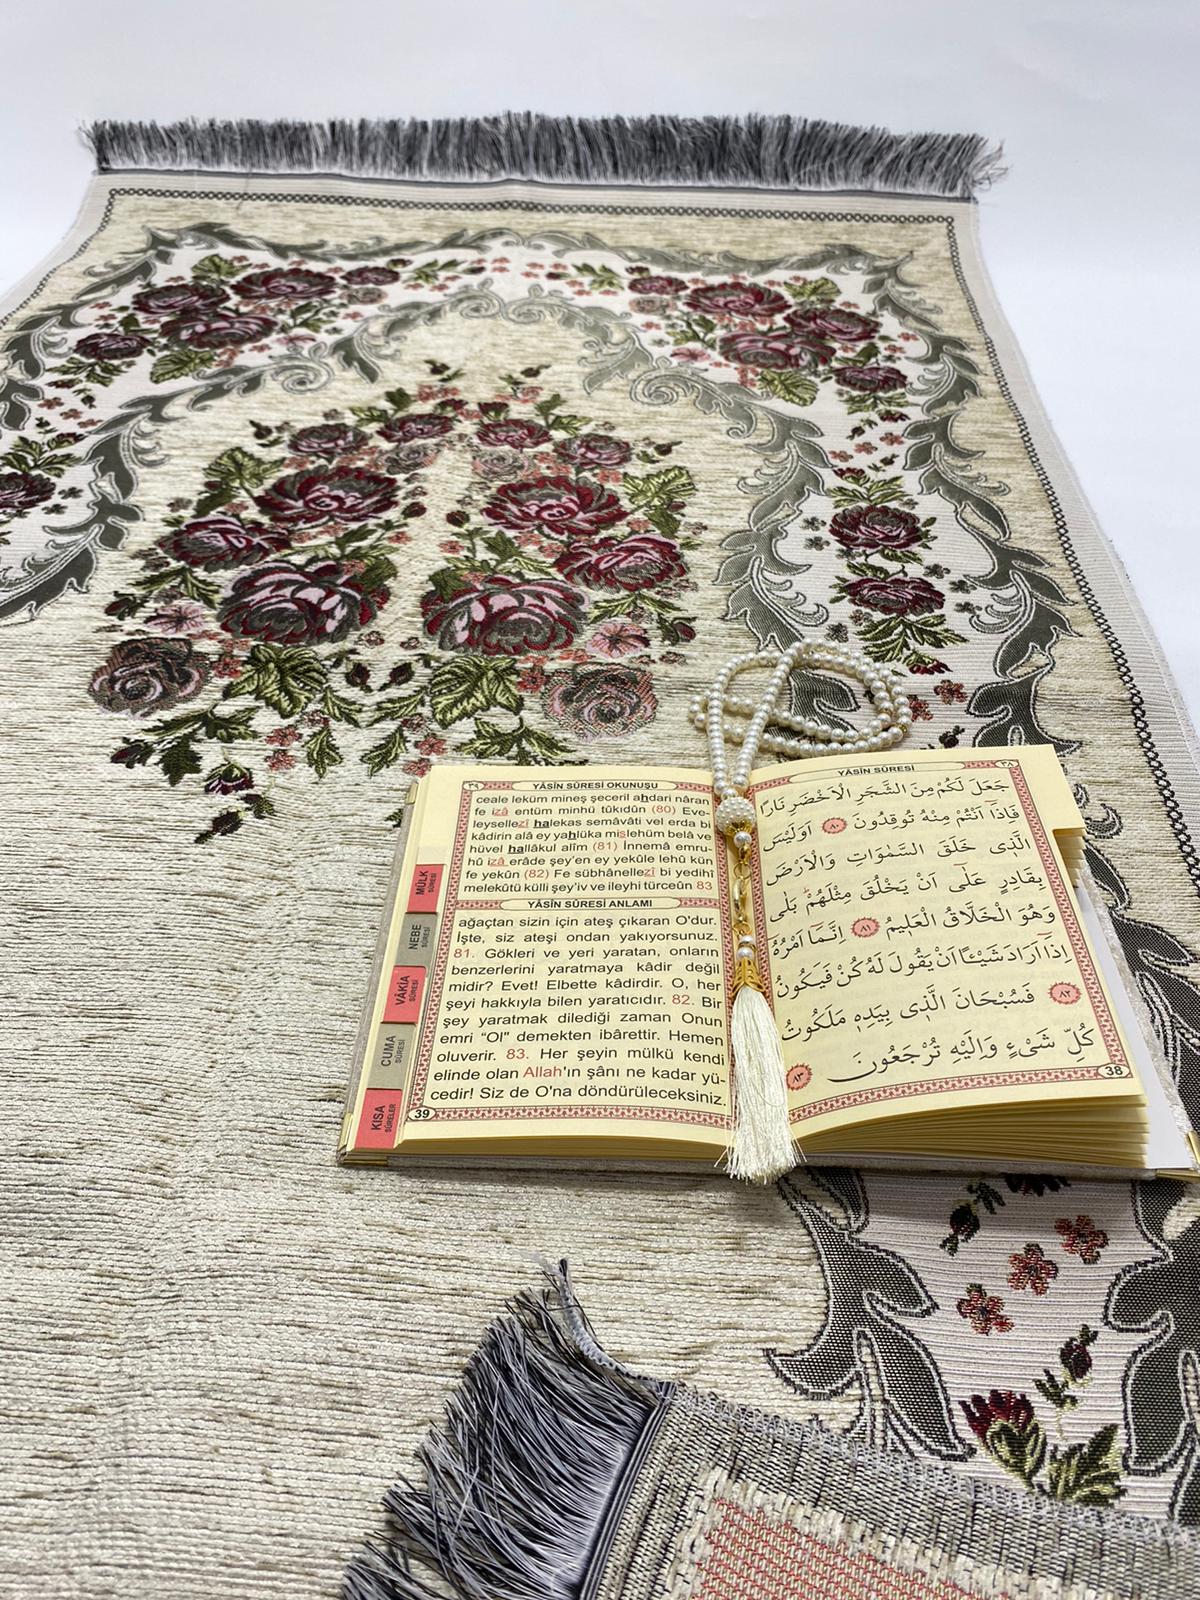 ٣٩
YÂSİN SÛRESİ OKUNUŞU
ceale leküm mineş şeceril ahdari nâran
fe izâ entüm minhü tûkidûn (80) Eve-
leysellezî halekas semâvâti vel erda bi
kâdirin alâ ey yahlüka mislehüm belâ ve
hüvel hallâkul alîm (81) İnnemâ emru-
hû izâ erâde şey'en ey yekûle lehû kün
fe yekûn (82) Fe sübhânellezî bi yedihî
melekûtü külli şey'iv ve ileyhi türceûn 83
YÂSİN SÛRESİ ANLAMI
ağaçtan sizin için ateş çıkaran O'dur.
İşte, siz ateşi ondan yakıyorsunuz.
81. Gökleri ve yeri yaratan, onların
benzerlerini yaratmaya kâdir değil
midir? Evet! Elbette kâdirdir. O, her
şeyi hakkıyla bilen yaratıcıdır. 82. Bir
şey yaratmak dilediği zaman Onun
emri “Ol” demekten ibârettir. Hemen
oluverir. 83. Her şeyin mülkü kendi
elinde olan Allah'ın şânı ne kadar yü-
cedir! Siz de O'na döndürüleceksiniz.
39
MÜLK
SÛRESİ
NEBE
SÛRESİ
VÂKIA
SÛRESİ
CUMA
SÛRESİ
KISA
SÛRELER
٣٨
YÂSİN SÛRESİ
جَعَلَ لَكُمْ مِنَ الشَّجَرِ الْاَخْضَرِ نَارًا
فَاِذَٓا اَنْتُمْ مِنْهُ تُوقِدُونَ ٨٠ اَوَلَيْسَ
الَّذ۪ي خَلَقَ السَّمٰوَاتِ وَالْاَرْضَ
بِقَادِرٍ عَلٰٓى اَنْ يَخْلُقَ مِثْلَهُمْ بَلٰى
وَهُوَ الْخَلَّاقُ الْعَل۪يمُ ٨١ اِنَّمَٓا اَمْرُهُٓ
اِذَٓا اَرَادَ شَيْـًٔا اَنْ يَقُولَ لَهُ كُنْ فَيَكُونُ
٨٢ فَسُبْحَانَ الَّذ۪ي بِيَدِه۪ مَلَكُوتُ
كُلِّ شَيْءٍ وَاِلَيْهِ تُرْجَعُونَ ٨٣
38